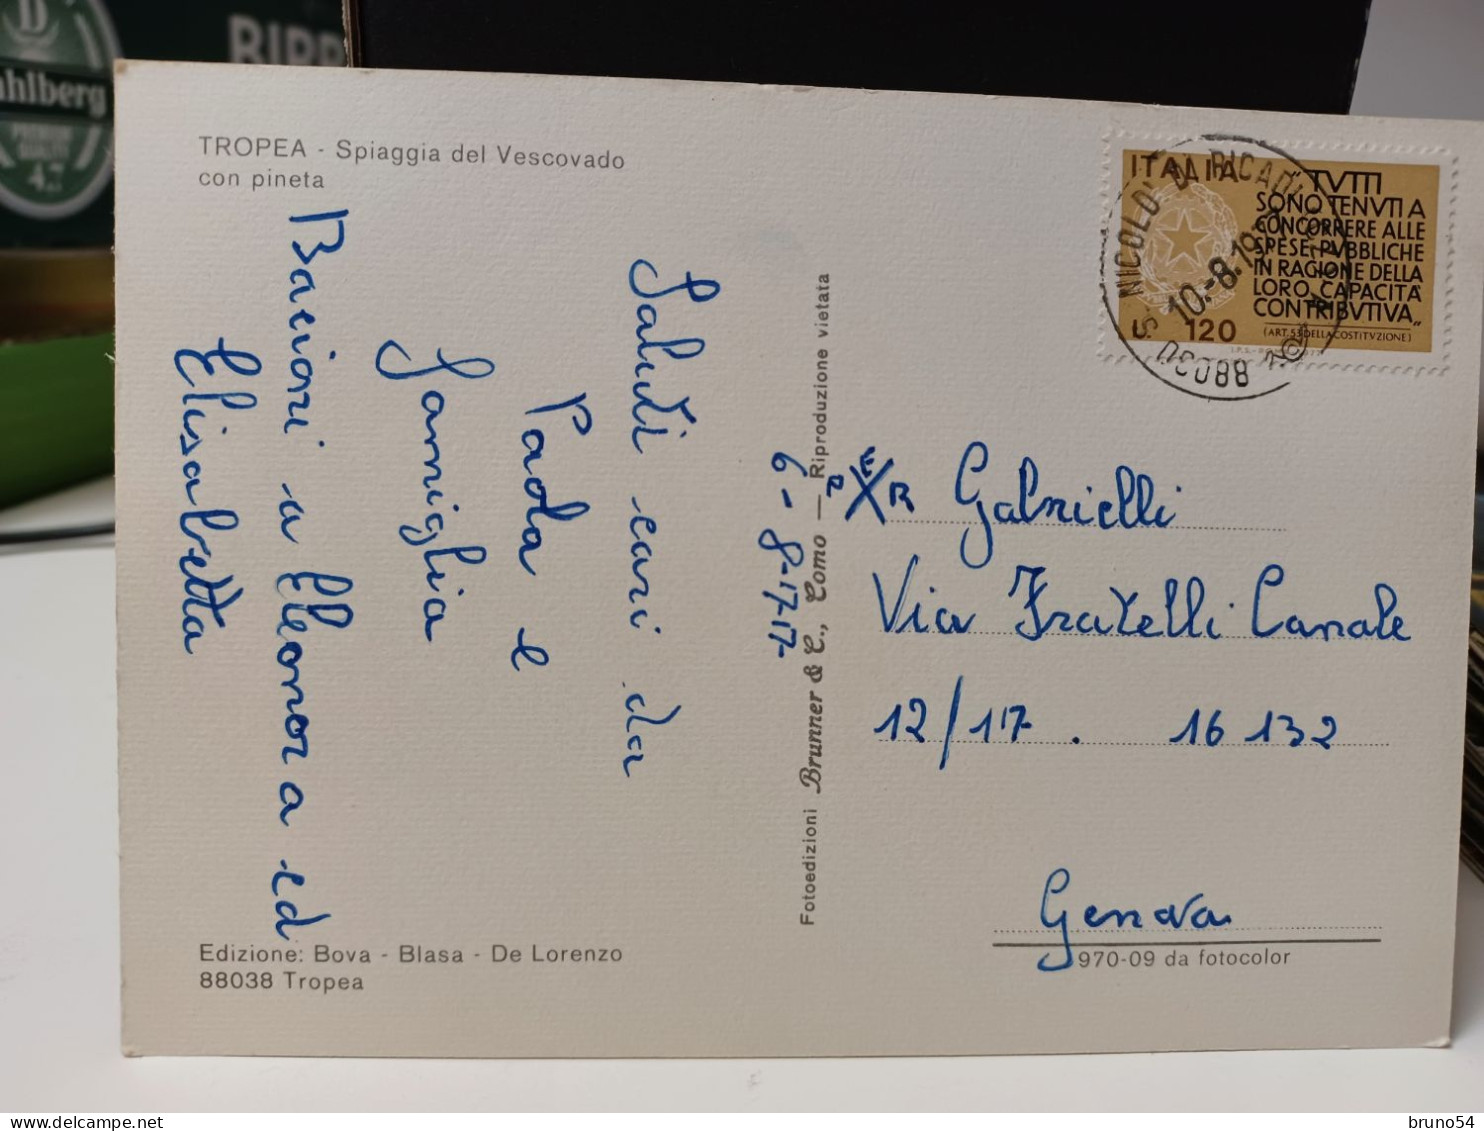 BIPP
D
ahlberg
PREMIUM
QUALITY
4,7
TROPEA - Spiaggia del Vescovado
con pineta
Saluti cari da
Paola e
Famiglia
Bacioni a Eleonora ed
Elisabetta
6-8-1717-
Fotoedizioni Brunner & C., Como — Riproduzione vietata
ITALIA
"TVTTI
SONO TENVTI A
CONCORRERE ALLE
SPESE PVBBLICHE
IN RAGIONE DELLA
LORO CAPACITÀ
CONTRIBVTIVA„
(ART. 53 DELLA COSTITVZIONE)
L. 120
S. NICOLO' D RICADI
10.-8.19
88030
Gabrielli
Via Fratelli Canale
12/17. 16132
Genova
970-09 da fotocolor
Edizione: Bova - Blasa - De Lorenzo
88038 Tropea
delcampe.net
bruno54